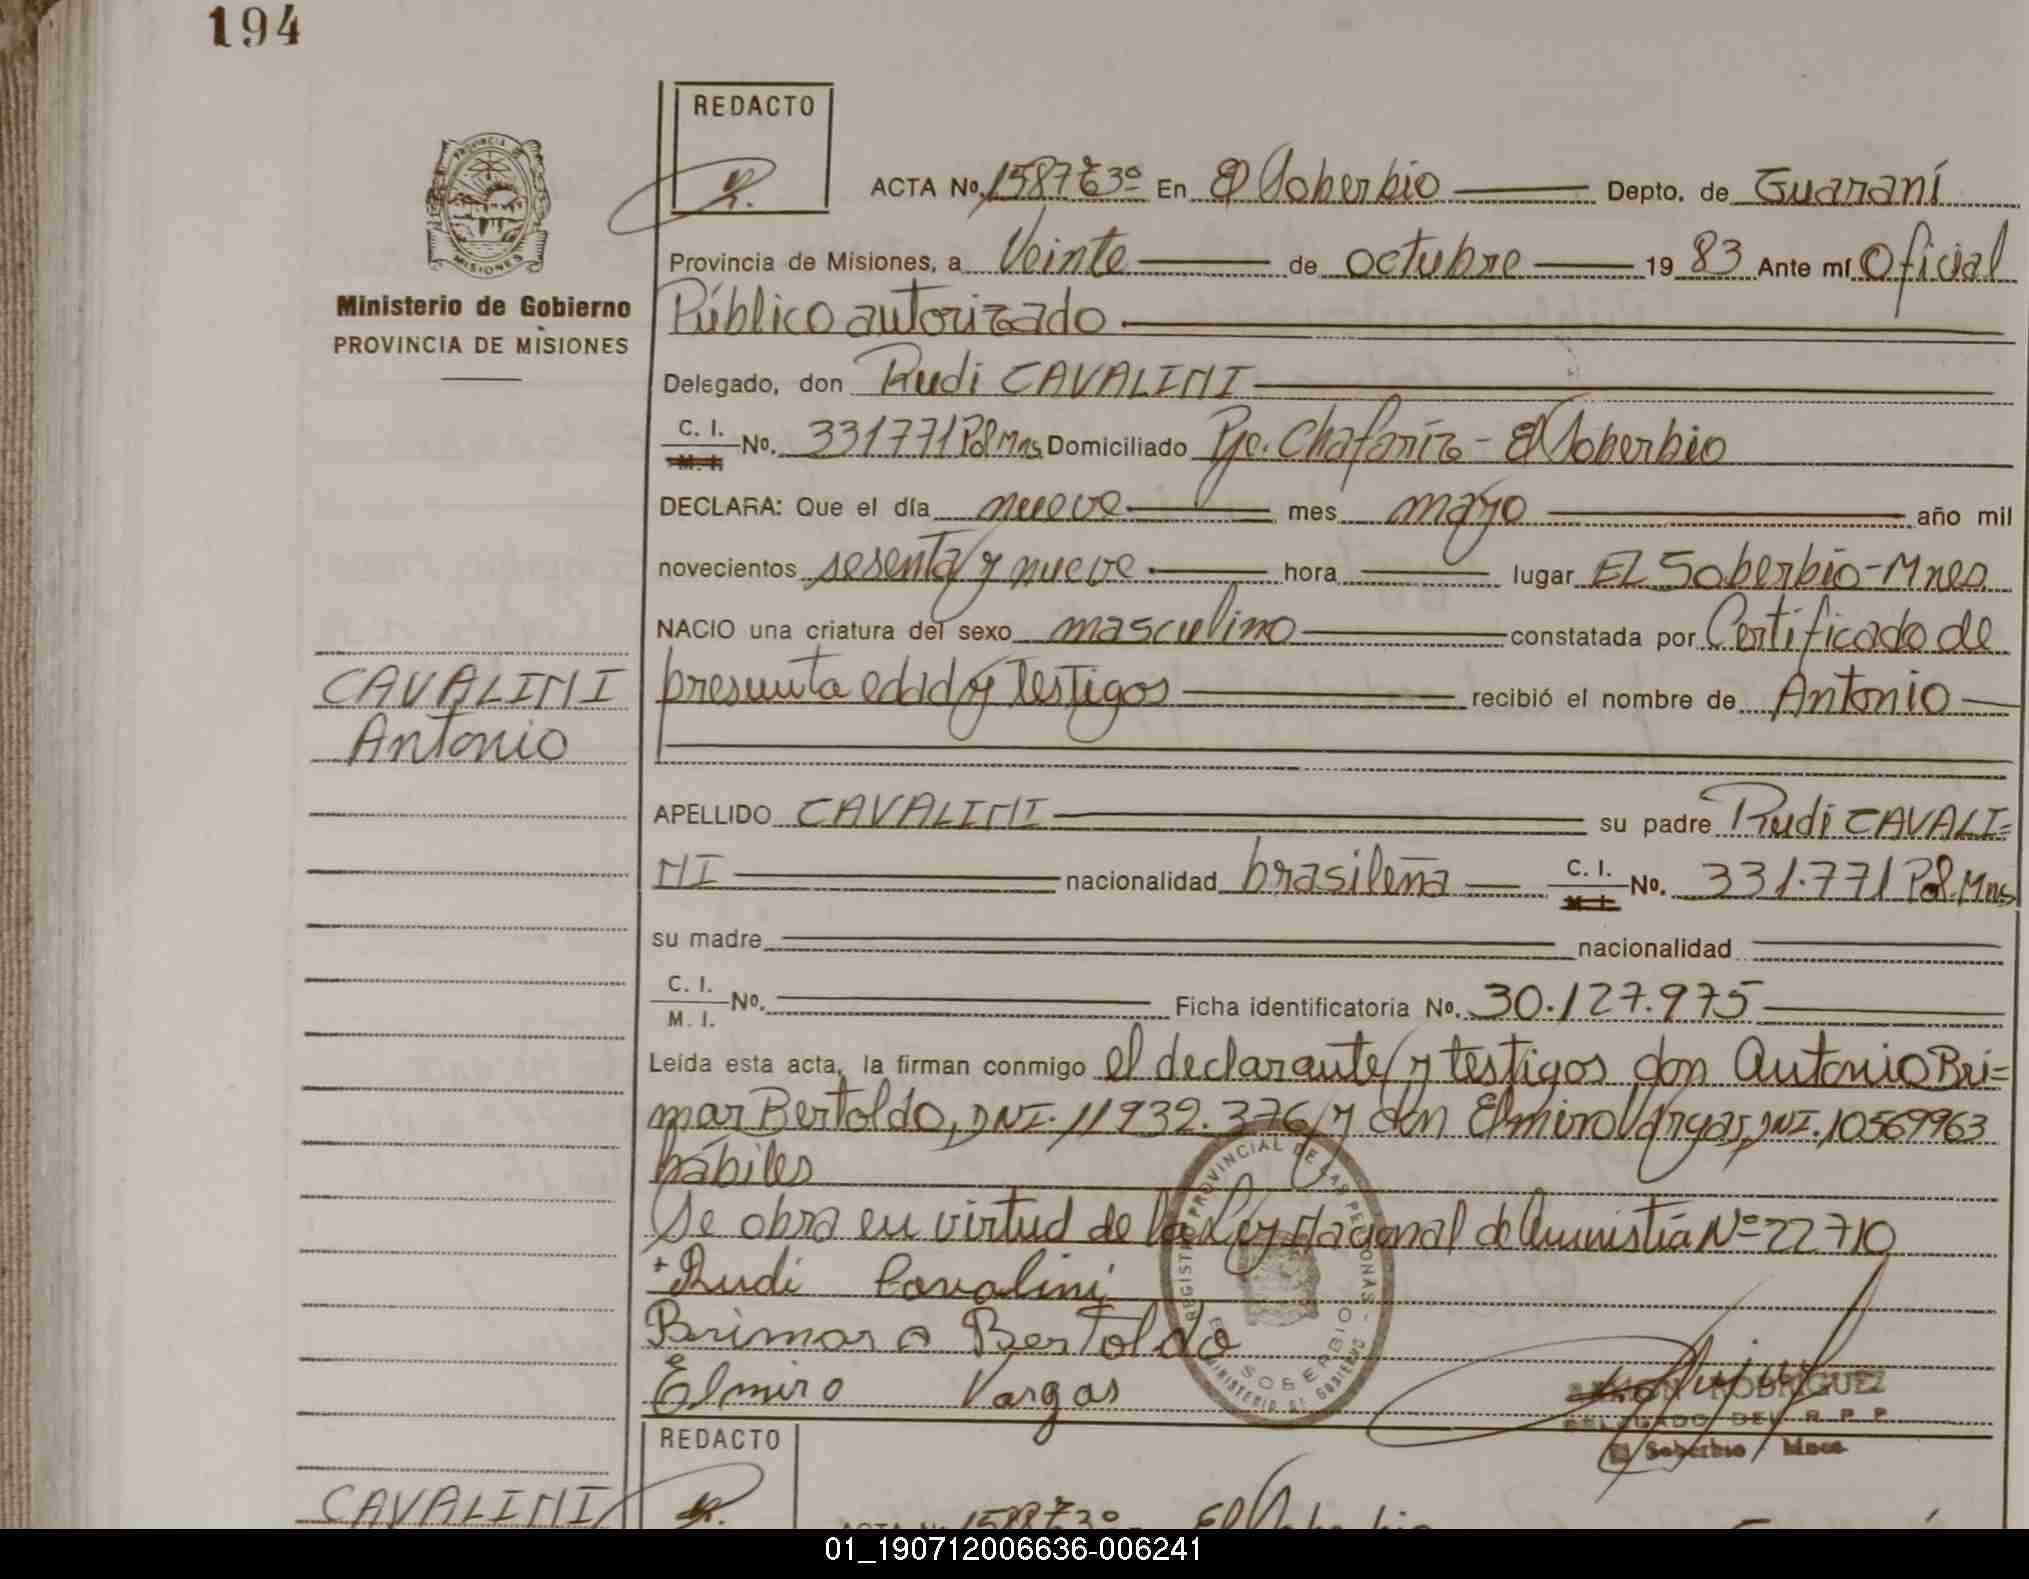 194
REDACTO
ACTA No. 1587 T3º En El Soberbio Depto. de Guaraní
Provincia de Misiones, a Veinte de octubre 1983 Ante mí Oficial
Público autorizado
Ministerio de Gobierno
PROVINCIA DE MISIONES
Delegado, don Rudi CAVALINI
C. I. No. 331771 Pol Mns Domiciliado Pje. Chafariz - El Soberbio
M. I.
DECLARA: Que el día nueve mes mayo año mil
novecientos sesenta y nueve hora lugar EL Soberbio-Mnes
NACIO una criatura del sexo masculino constatada por Certificado de
presunta edad y testigos recibió el nombre de Antonio
CAVALINI
Antonio
APELLIDO CAVALINI su padre Rudi CAVALI=
NI nacionalidad brasileña C. I. No. 331.771 Pol. Mns
M. I.
su madre nacionalidad
C. I. No. Ficha identificatoria No. 30.127.975
M. I.
Leída esta acta, la firman conmigo el declarante y testigos don Antonio Bri=
mar Bertoldo, DNI. 11932.376 y don Elmiro Vargas, DNI. 10569963
hábiles
Se obra en virtud de la Ley Nacional de Amnistía Nº 22710
+Rudi Cavalini
Brimar A Bertoldo
Elmiro Vargas
REGISTRO PROVINCIAL DE LAS PERSONAS
EL SOBERBIO
MINISTERIO DE GOBIERNO
RAMON RODRIGUEZ
DELEGADO DEL R. P. P.
El Soberbio Mnes
REDACTO
CAVALINI
ACTA No. 1588 T3º El Soberbio
01_190712006636-006241